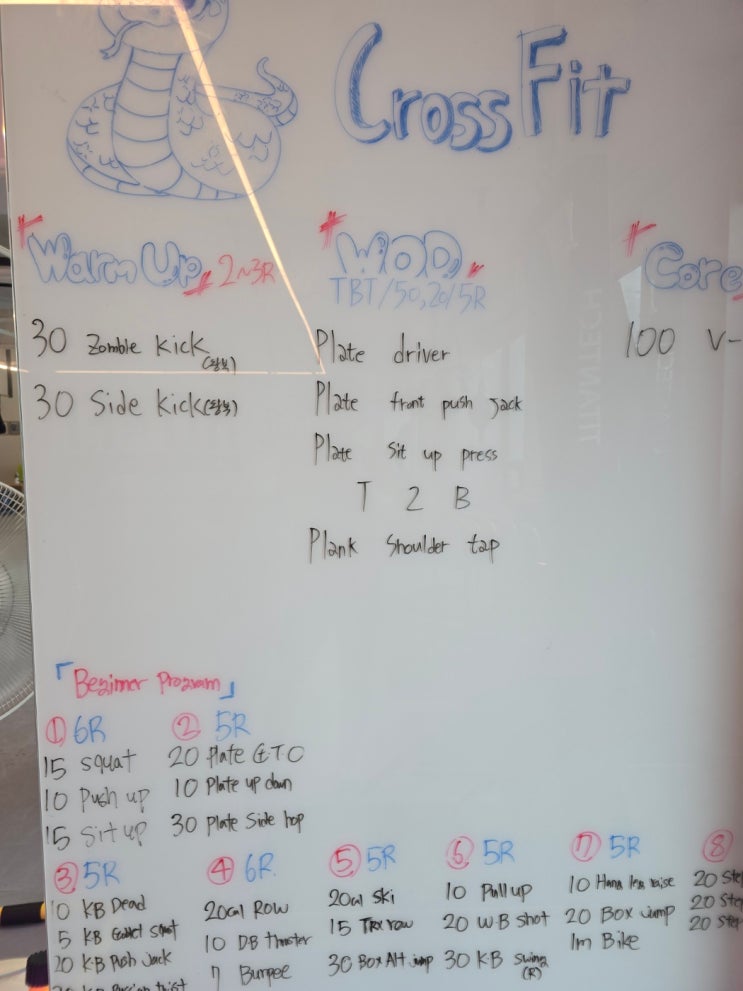 CrossFit
Warm Up 2~3R
30 Zombie Kick (왕복)
30 Side Kick (왕복)
WOD
TBT/50,20/5R
Plate driver
Plate front push Jack
Plate Sit up press
T 2 B
Plank Shoulder tap
Core
100 V-
TITANTECH
「Beginner Program」
① 6R
15 Squat
10 Push up
15 Sit up
② 5R
20 Plate G.T.O
10 Plate up down
30 Plate Side hop
③ 5R
10 KB Dead
5 KB Goblet Squat
20 KB Push Jack
KB Russian twist
④ 6R
20cal Row
10 DB thruster
7 Burpee
⑤ 5R
20cal Ski
15 TRX row
30 Box Alt Jump
⑥ 5R
10 Pull up
20 WB Shot
30 KB Swing
(R)
⑦ 5R
10 Hang leg raise
20 Box Jump
1m Bike
⑧
20 Step
20 Step
20 Step